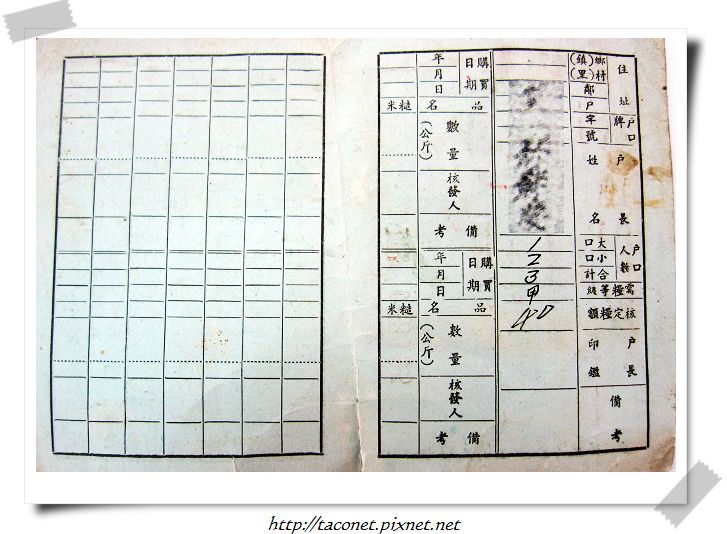 住址
鄉(鎮)
村(里)
鄰
戶
戶口牌
字
號
戶長姓名
戶口人數
大口
1
小口
2
合計
3
需糧等級
甲
核定糧額
40
戶長印鑑
備考
購買日期
年
月
日
品名
糙米
數量(公斤)
核發人
備考
購買日期
年
月
日
品名
糙米
數量(公斤)
核發人
備考
http://taconet.pixnet.net